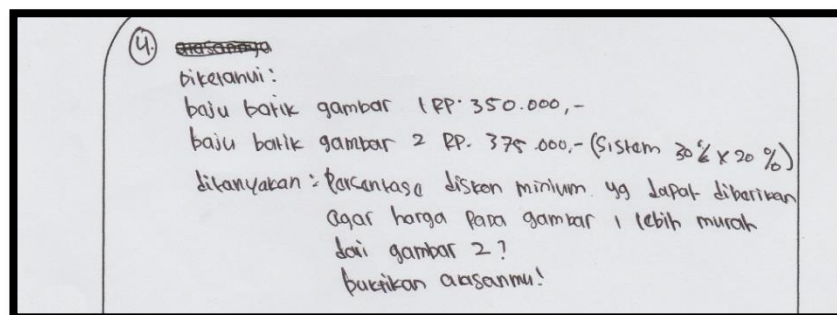 4. alasannya
Diketahui:
baju batik gambar 1 RP. 350.000,-
baju batik gambar 2 RP. 375.000,- (Sistem 30% x 20%)
ditanyakan: Persentase diskon minium yg dapat diberikan
agar harga pada gambar 1 lebih murah
dari gambar 2?
buktikan alasanmu!